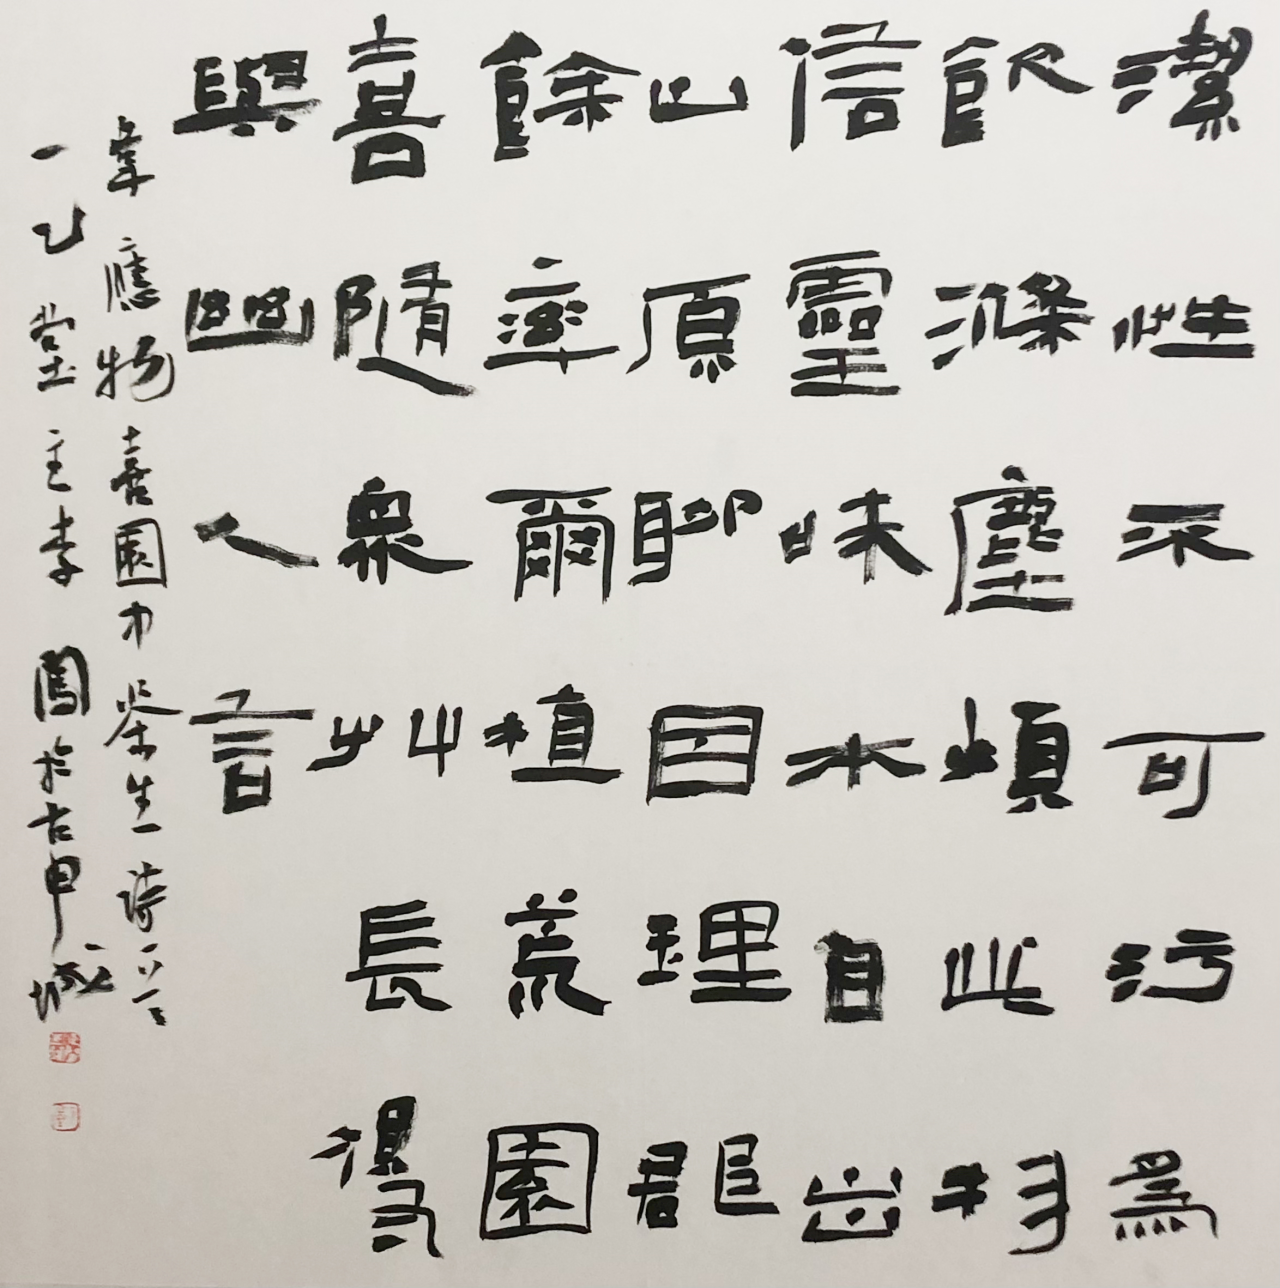 潔性不可污為
飲滌塵煩此物
信靈味本自出
山原聊因理郡
餘率爾植荒園
喜隨眾艸長得
與幽人言
韋應物喜園中茶生詩一首
一乙堂主李鳳於古申城